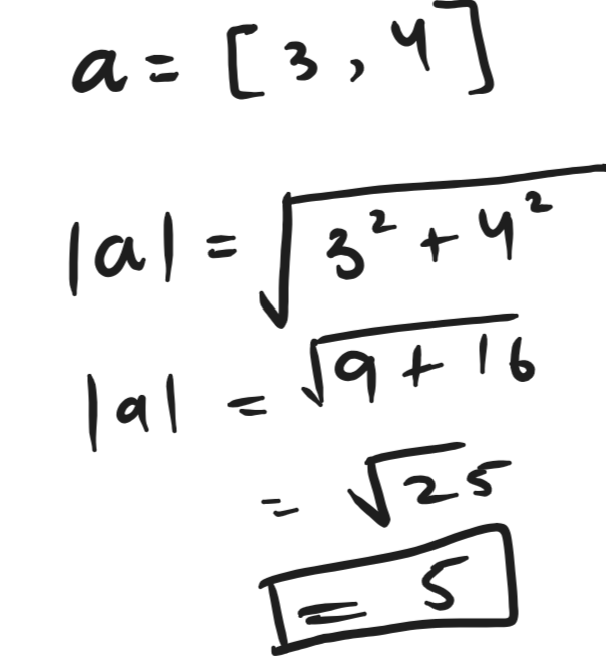 a = [3, 4]
|a| = √3² + 4²
|a| = √9 + 16
= √25
= 5